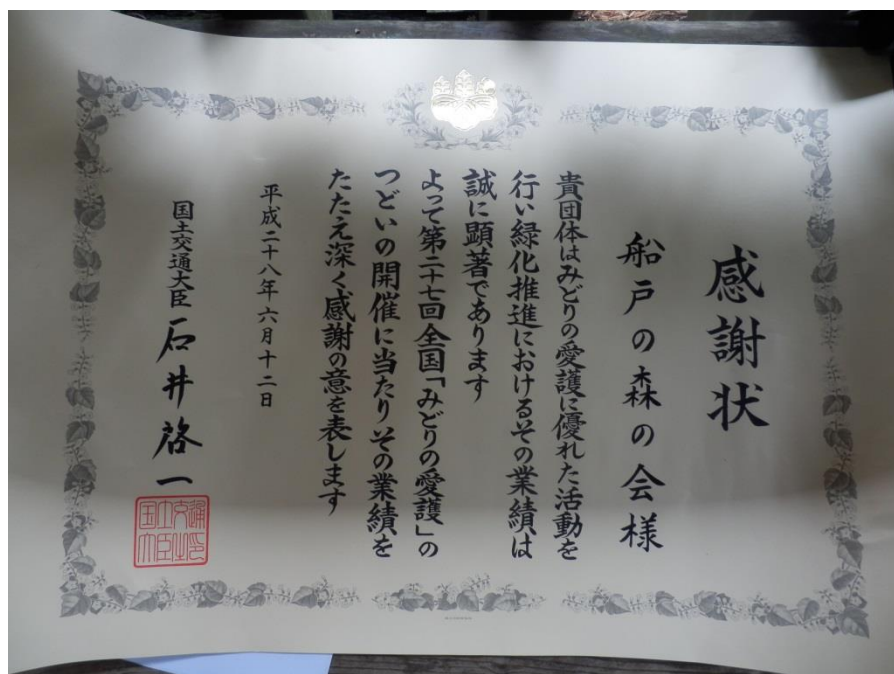 感謝状
船戸の森の会様
貴団体はみどりの愛護に優れた活動を
行い緑化推進におけるその業績は
誠に顕著であります
よって第二十七回全国「みどりの愛護」の
つどいの開催に当たりその業績を
たたえ深く感謝の意を表します
平成二十八年六月十二日
国土交通大臣 石井啓一